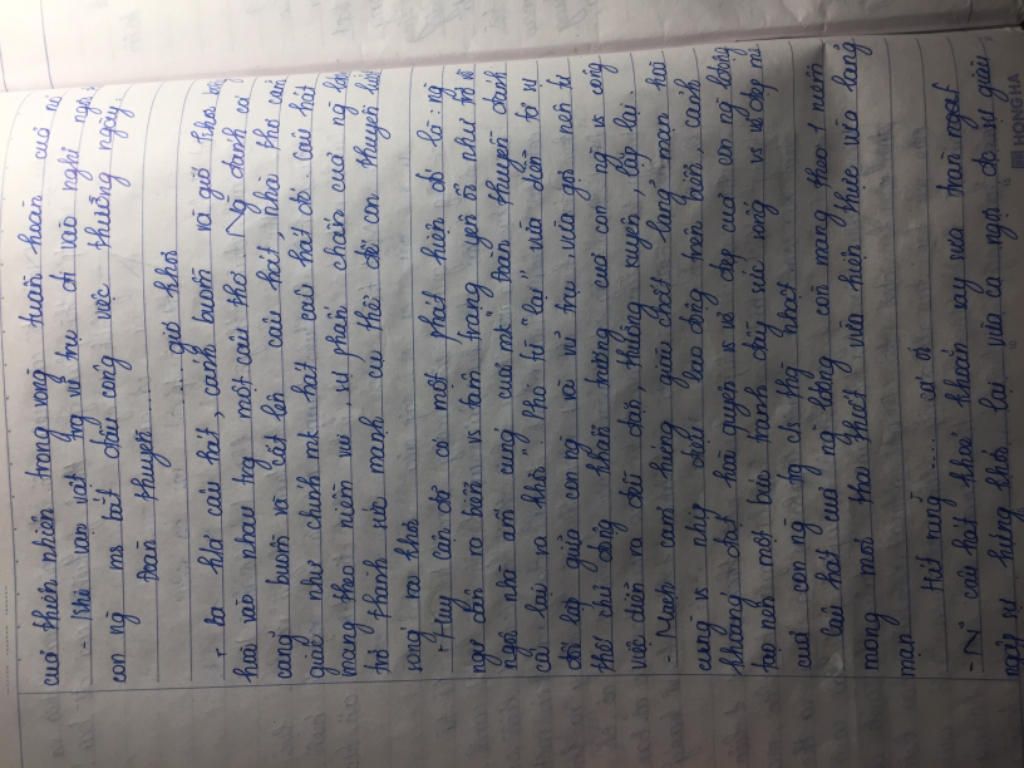 của thiên nhiên trong vòng tuần hoàn của nó
- Khi vạn vật trg vũ trụ đi vào nghỉ ngơi
con ng ms bắt đầu công việc thường ngày.
Đoàn thuyền ......... gió khơi
- ba h/a câu hát, cánh buồm và gió khơi
hoà vào nhau trg một câu thơ. danh ca
căng buồm và cất lên câu hát nhà thơ
giữ như chính mặt hát cái hát đó. câu hát
mang theo niềm vui, sự phấn chấn của ng
trở thành sức mạnh cụ thể đẩy con thuyền
song ra khơi
+ Huy Cận đã có một phát hiện đó là: ng
ngư dân ra biển vs tâm trạng yên ổn như trở về
ngôi nhà ấm cúng của mk", đoàn thuyền đánh
cá lại ra khơi" Phó từ "lại" vừa diễn tả sự
đối lập giữa con ng và vũ trụ, vừa gợi nên tư
thế chủ động thần tượng của con ng vs công
việc diễn ra đều đặn thường xuyên, lặp lại.
- Mạch cảm hứng giàu chất lãng mạn hào
cùng vs nhịp điệu lao động trên biển cảnh
khoáng đạt hoà quyện vs vẻ đẹp của con ng lđộng
tạo nên một bức tranh đầy sức sống vs vẻ đẹp
của con ng trg c/s thg nhật
câu hát của ng lđộng còn mang theo 1 niềm
mong mỏi tha thiết vừa hiện thực vừa lãng
mạn
Hát rằng ........ cá ơi
- câu hát khoẻ khoắn say sưa tràn ngợi
ngợi sự hứng khởi lại vừa ca ngợi đó sự giàu
HONG HA